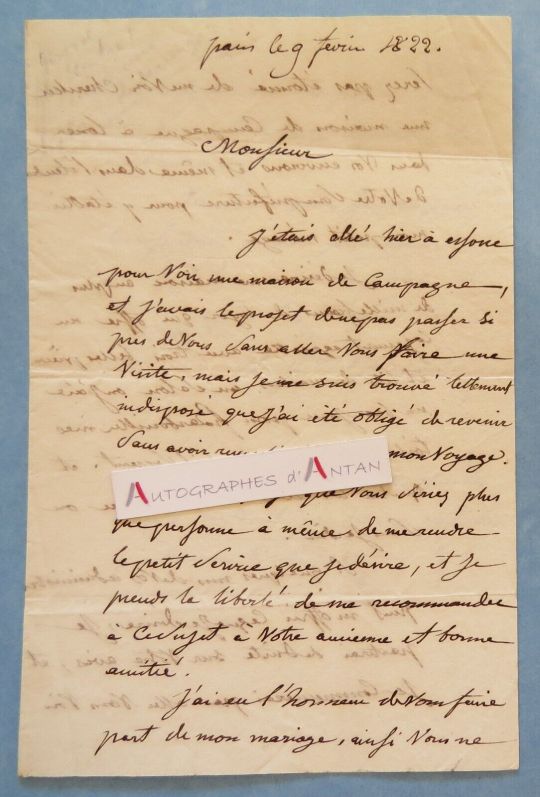 paris le 9 fevrier 1822.
Monsieur
J'étais allé hier à essone
pour Voir une maison de Campagne,
et j'avais le projet de ne pas passer si
près de Vous sans aller Vous faire une
Visite, mais je me suis trouvé tellement
indisposé que j'ai été obligé de revenir
sans avoir mon Voyage.
AUTOGRAPHES d'ANTAN
que Vous seriez plus
que personne à même de me rendre
le petit service que je désire, et je
prends la liberté de me recommander
à ce sujet à Votre ancienne et bonne
amitié.
J'ai eu l'honneur de Vous faire
part de mon mariage, ainsi Vous ne